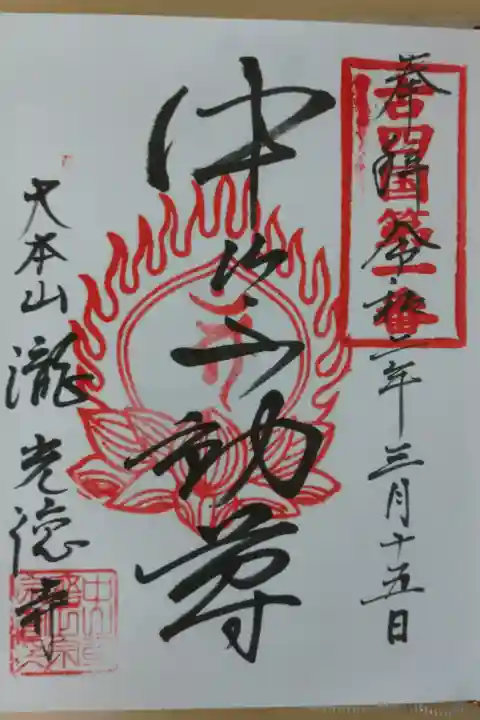 奉拝 令和三年三月十五日
国第一番
中山不動尊
大本山 瀧光徳寺